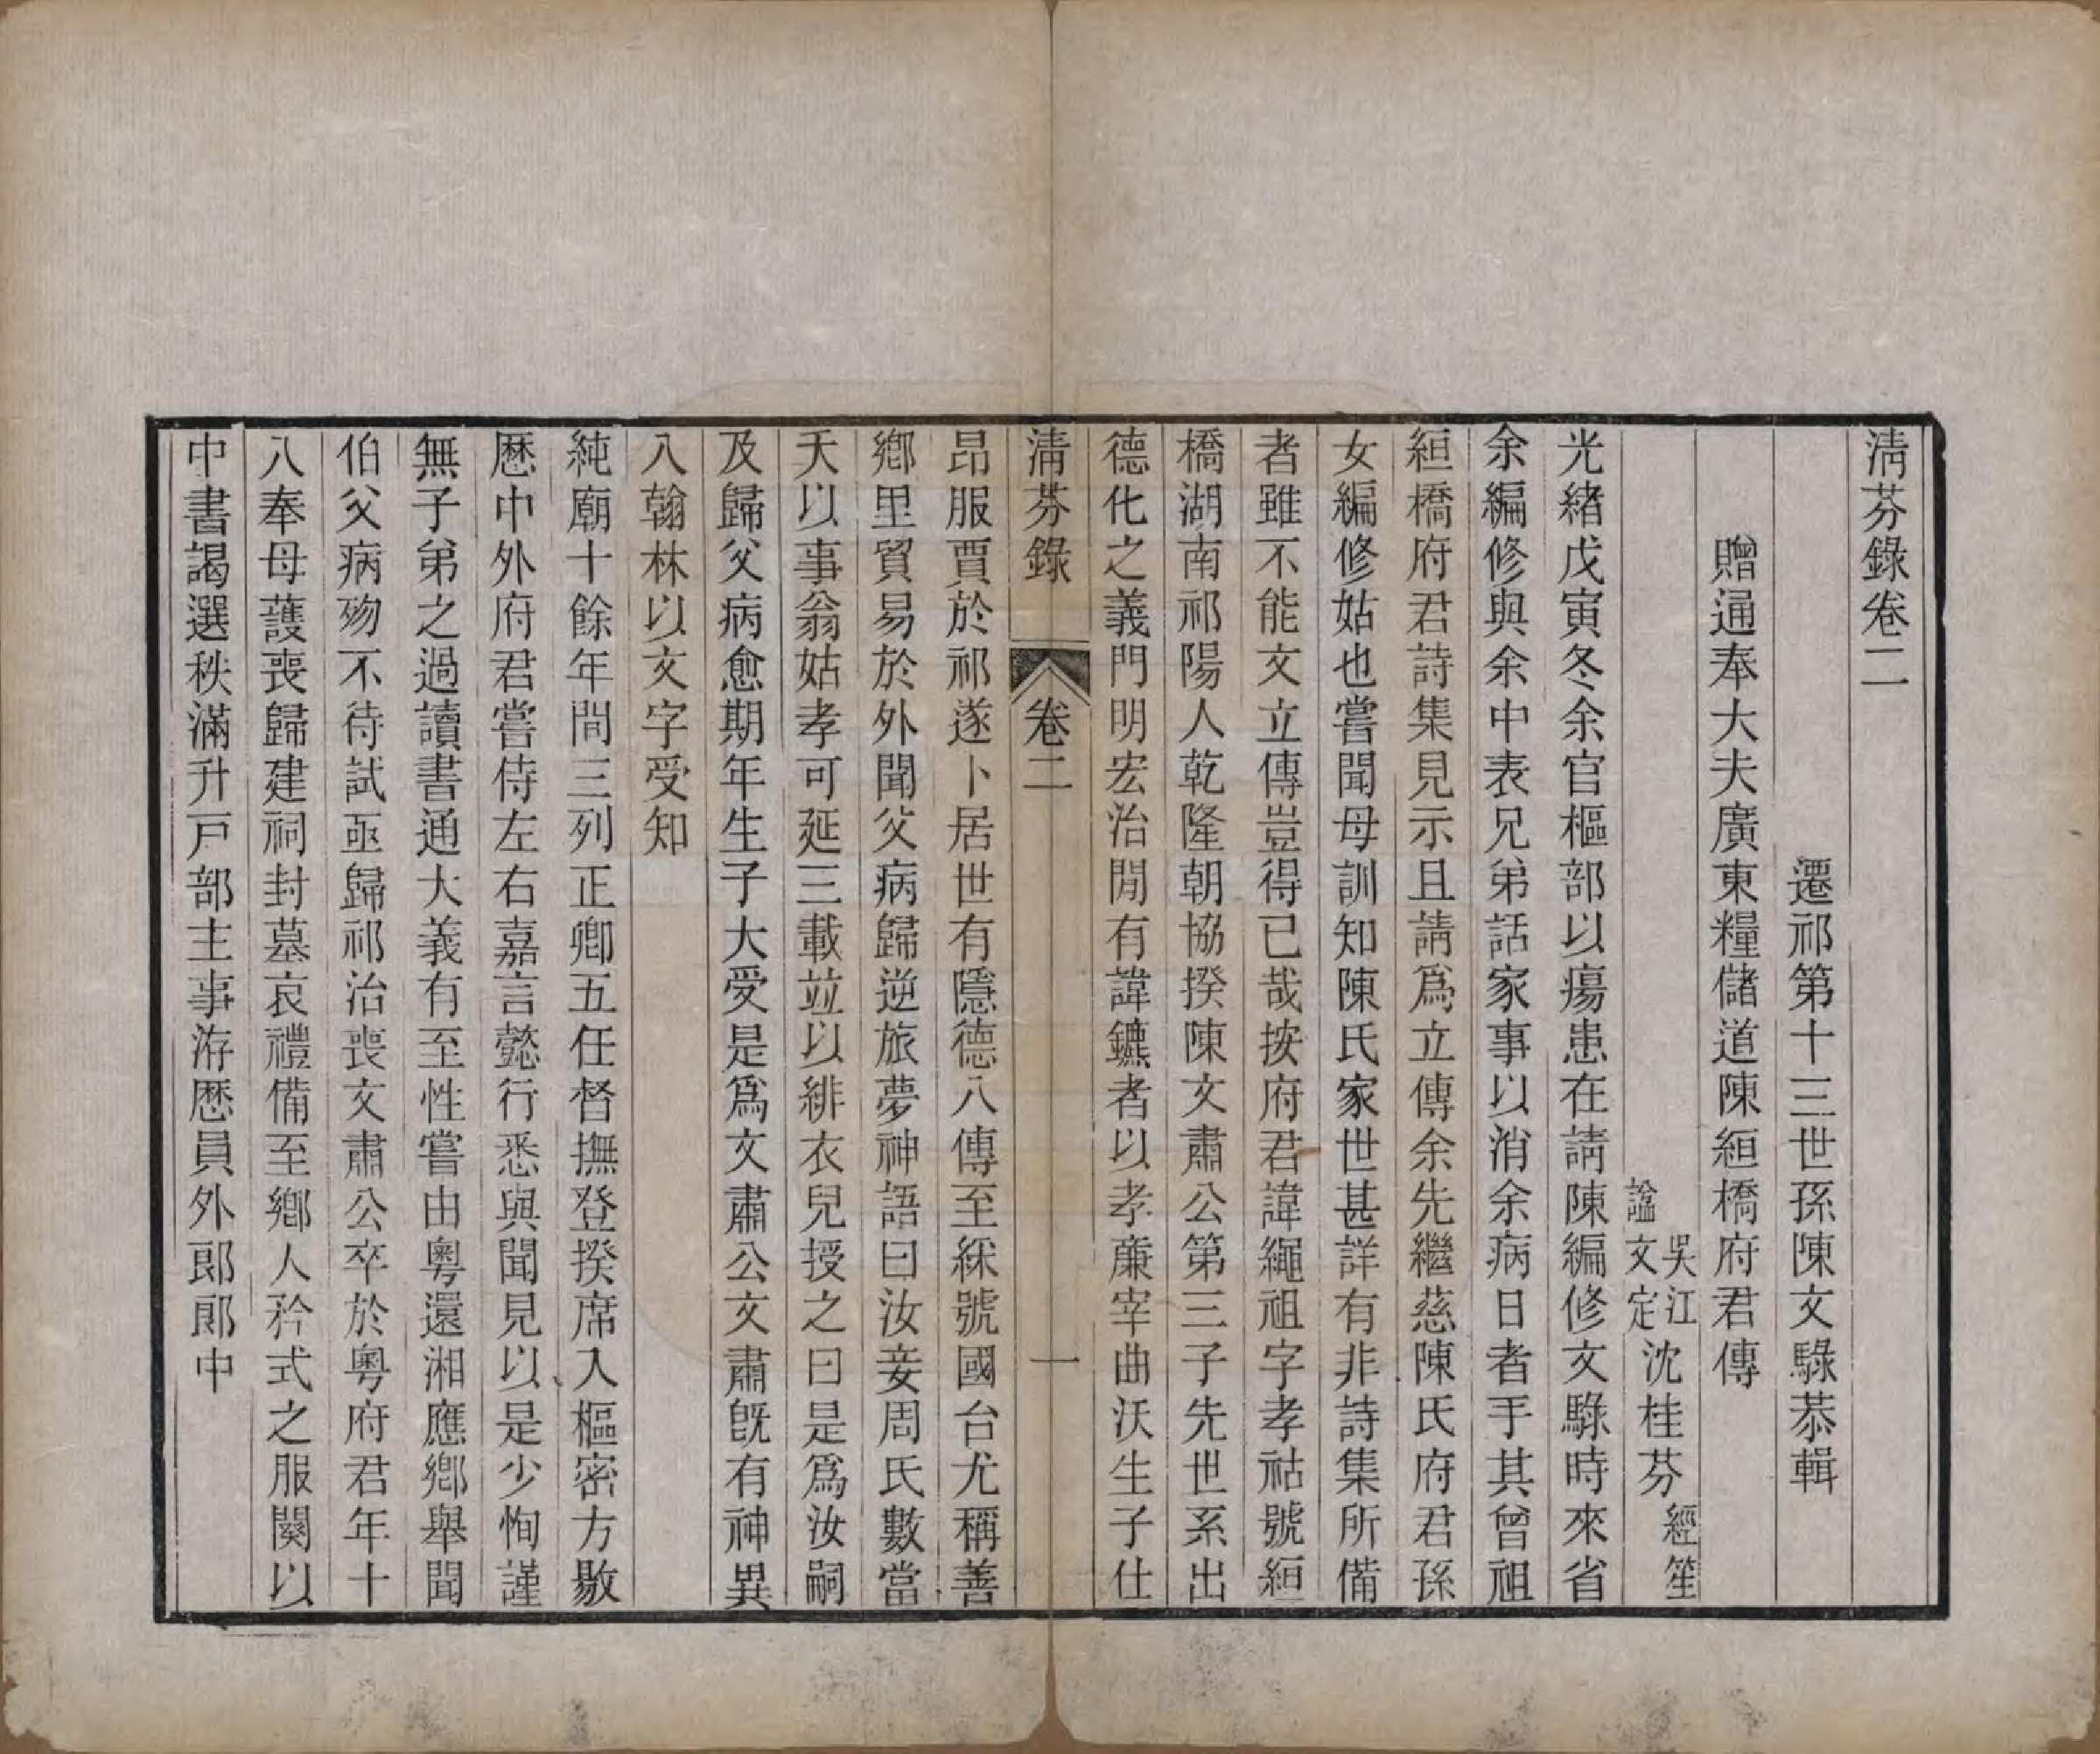 淸芬錄卷二
遷祁第十三世孫陳文騄恭輯
贈通奉大夫廣東糧儲道陳絙橋府君傳
吳江諡文定沈桂芬經笙
光緒戊寅冬余官樞部以瘍患在請陳編修文騄時來省
余編修與余中表兄弟話家事以消余病日者手其曾祖
絙橋府君詩集見示且請爲立傳余先繼慈陳氏府君孫
女編修姑也嘗聞母訓知陳氏家世甚詳有非詩集所備
者雖不能文立傳豈得已哉按府君諱繩祖字孝祜號絙
橋湖南祁陽人乾隆朝協揆陳文肅公第三子先世系出
德化之義門明宏治閒有諱鑣者以孝廉宰曲沃生子仕
淸芬錄 卷二 一
昂服賈於祁遂卜居世有隱德八傳至綵號國台尤稱善
鄉里貿易於外聞父病歸逆旅夢神語曰汝妾周氏數當
夭以事翁姑孝可延三載並以緋衣兒授之曰是爲汝嗣
及歸父病愈期年生子大受是爲文肅公文肅旣有神異
入翰林以文字受知
純廟十餘年間三列正卿五任督撫登揆席入樞密方敭
歷中外府君嘗侍左右嘉言懿行悉與聞見以是少恂謹
無子弟之過讀書通大義有至性嘗由粵還湘應鄉舉聞
伯父病歾不待試亟歸祁治喪文肅公卒於粵府君年十
八奉母護喪歸建祠封墓哀禮備至鄉人矜式之服闋以
中書謁選秩滿升戸部主事洊歷員外郎郎中